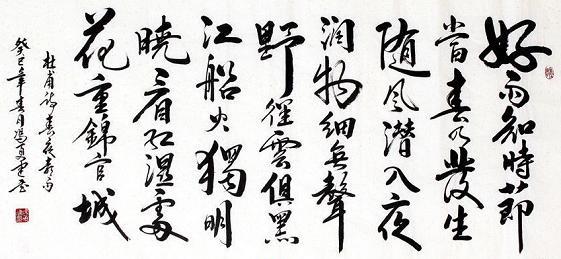 好雨知時節
當春乃發生
随風潛入夜
潤物細無聲
野徑雲俱黑
江船火獨明
曉看紅濕處
花重錦官城
杜甫詩春夜喜雨
癸巳年春月馮